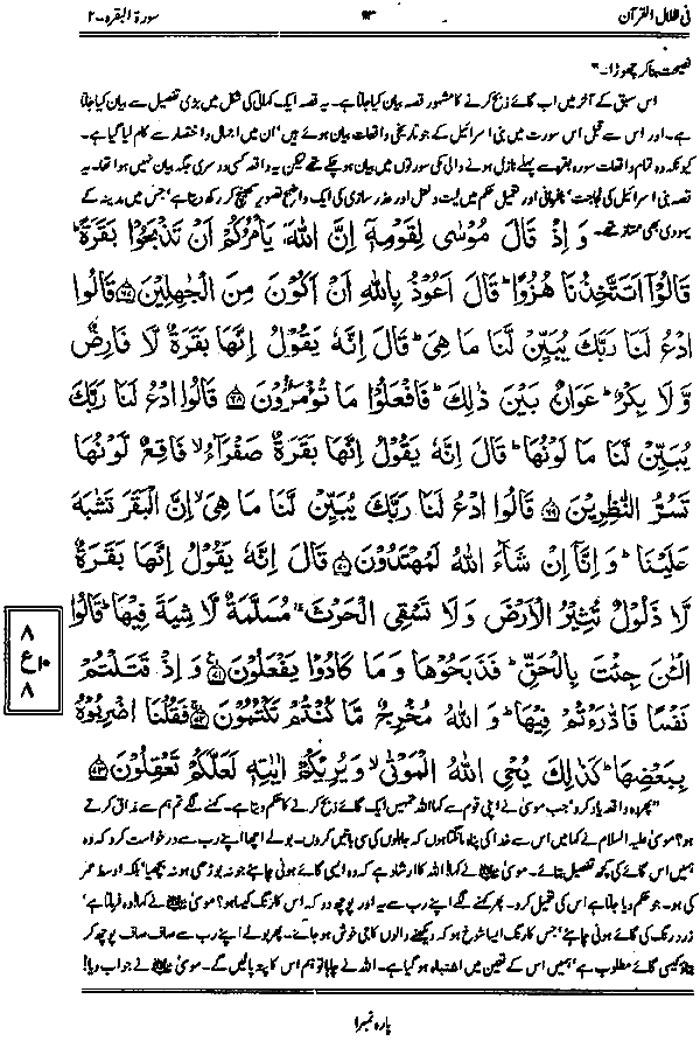 فی ظلال القرآن ۹۳ سورۃ البقرہ-۲
نصیحت بنا کر چھوڑا۔"
اس سبق کے آخر میں اب گائے ذبح کرنے کا مشہور قصہ بیان کیا جاتا ہے۔ یہ قصہ ایک کہانی کی شکل میں بڑی تفصیل سے بیان کیا جاتا
ہے۔ اور اس سے قبل اس سورت میں بنی اسرائیل کے جو تاریخی واقعات بیان ہوئے ہیں' ان میں اجمال و اختصار سے کام لیا گیا ہے۔
کیونکہ وہ تمام واقعات سورہ بقرہ سے پہلے نازل ہونے والی مکی سورتوں میں بیان ہو چکے تھے لیکن یہ واقعہ کسی دوسری جگہ بیان نہیں ہوا تھا۔ یہ
قصہ بنی اسرائیل کی لجاجت' نافرمانی اور تعمیل حکم میں لیت و لعل اور عذر سازی کی ایک واضح تصویر کھینچ کر رکھ دیتا ہے' جس میں مدینہ کے
یہودی بھی ممتاز تھے۔ وَ اِذْ قَالَ مُوْسٰى لِقَوْمِهٖۤ اِنَّ اللّٰهَ يَاْمُرُكُمْ اَنْ تَذْبَحُوْا بَقَرَةً ؕ
قَالُوْۤا اَتَتَّخِذُنَا هُزُوًا ؕ قَالَ اَعُوْذُ بِاللّٰهِ اَنْ اَكُوْنَ مِنَ الْجٰهِلِيْنَ ﴿۶۷﴾ قَالُوا
ادْعُ لَنَا رَبَّكَ يُبَيِّنْ لَّنَا مَا هِيَ ؕ قَالَ اِنَّهٗ يَقُوْلُ اِنَّهَا بَقَرَةٌ لَّا فَارِضٌ
وَّ لَا بِكْرٌ ؕ عَوَانٌۢ بَيْنَ ذٰلِكَ ؕ فَافْعَلُوْا مَا تُؤْمَرُوْنَ ﴿۶۸﴾ قَالُوا ادْعُ لَنَا رَبَّكَ
يُبَيِّنْ لَّنَا مَا لَوْنُهَا ؕ قَالَ اِنَّهٗ يَقُوْلُ اِنَّهَا بَقَرَةٌ صَفْرَآءُ ۙ فَاقِعٌ لَّوْنُهَا
تَسُرُّ النّٰظِرِيْنَ ﴿۶۹﴾ قَالُوا ادْعُ لَنَا رَبَّكَ يُبَيِّنْ لَّنَا مَا هِيَ ۙ اِنَّ الْبَقَرَ تَشٰبَهَ
عَلَيْنَا ؕ وَ اِنَّاۤ اِنْ شَآءَ اللّٰهُ لَمُهْتَدُوْنَ ﴿۷۰﴾ قَالَ اِنَّهٗ يَقُوْلُ اِنَّهَا بَقَرَةٌ
لَّا ذَلُوْلٌ تُثِيْرُ الْاَرْضَ وَ لَا تَسْقِي الْحَرْثَ ۚ مُسَلَّمَةٌ لَّا شِيَةَ فِيْهَا ؕ قَالُوا
الْـٰٔنَ جِئْتَ بِالْحَقِّ ؕ فَذَبَحُوْهَا وَ مَا كَادُوْا يَفْعَلُوْنَ ﴿۷۱﴾ وَ اِذْ قَتَلْتُمْ
نَفْسًا فَادّٰرَءْتُمْ فِيْهَا ؕ وَ اللّٰهُ مُخْرِجٌ مَّا كُنْتُمْ تَكْتُمُوْنَ ﴿۷۲﴾ فَقُلْنَا اضْرِبُوْهُ
بِبَعْضِهَا ؕ كَذٰلِكَ يُحْيِ اللّٰهُ الْمَوْتٰى ۙ وَ يُرِيْكُمْ اٰيٰتِهٖ لَعَلَّكُمْ تَعْقِلُوْنَ ﴿۷۳﴾
۸
ع ۱۰
۸
"پھر وہ واقعہ یاد کرو' جب موسیٰ نے اپنی قوم سے کہا اللہ تمہیں ایک گائے ذبح کرنے کا حکم دیتا ہے۔ کہنے لگے تم ہم سے مذاق کرتے
ہو؟ موسیٰ علیہ السلام نے کہا میں اس سے خدا کی پناہ مانگتا ہوں کہ جاہلوں کی سی باتیں کروں۔ بولے اچھا اپنے رب سے درخواست کرو کہ وہ
ہمیں اس گائے کی کچھ تفصیل بتائے۔ موسیٰ علیہ السلام نے کہا! اللہ کا ارشاد ہے کہ وہ ایسی گائے ہونی چاہئے جو نہ بوڑھی ہو نہ بچھیا' بلکہ اوسط عمر
کی ہو۔ جو حکم دیا جاتا ہے اس کی تعمیل کرو۔ پھر کہنے لگے اپنے رب سے یہ اور پوچھ دو کہ اس کا رنگ کیسا ہو؟ موسیٰ علیہ السلام نے کہا! وہ فرماتا ہے'
زرد رنگ کی گائے ہونی چاہئے' جس کا رنگ ایسا شوخ ہو کہ دیکھنے والوں کا جی خوش ہو جائے۔ پھر بولے اپنے رب سے صاف صاف پوچھ کر
بتاؤ کیسی گائے مطلوب ہے' ہمیں اس کے تعین میں اشتباہ ہو گیا ہے۔ اللہ نے چاہا تو ہم اس کا پتہ پالیں گے۔ موسیٰ علیہ السلام نے جواب دیا!
پارہ نمبر۱